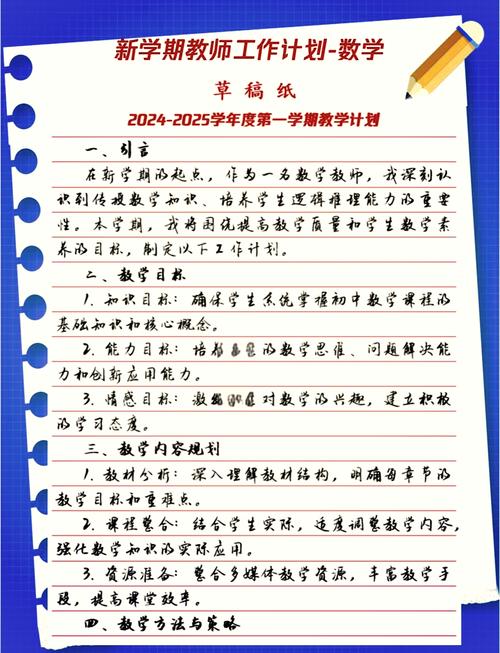 新学期教师工作计划-数学
草稿纸
2024-2025学年度第一学期教学计划
一、引言
在新学期的起点，作为一名数学教师，我深刻认
识到传授数学知识、培养学生逻辑推理能力的重要
性。本学期，我将围绕提高教学质量和学生数学素
养的目标，制定以下工作计划。
二、教学目标
1. 知识目标：确保学生系统掌握初中数学课程的
基础知识和核心概念。
2. 能力目标：培的数学思维、问题解决能
力和创新应用能力。
3. 情感目标：激对数学的兴趣，建立积极
的学习态度。
三、教学内容规划
1. 教材分析：深入理解教材结构，明确每章节的
教学目标和重难点。
2. 课程整合：结合学生实际，适度调整教学内容，
强化数学知识的实际应用。
3. 资源准备：整合多媒体教学资源，丰富教学手
段，提高课堂效率。
四、教学方法与策略